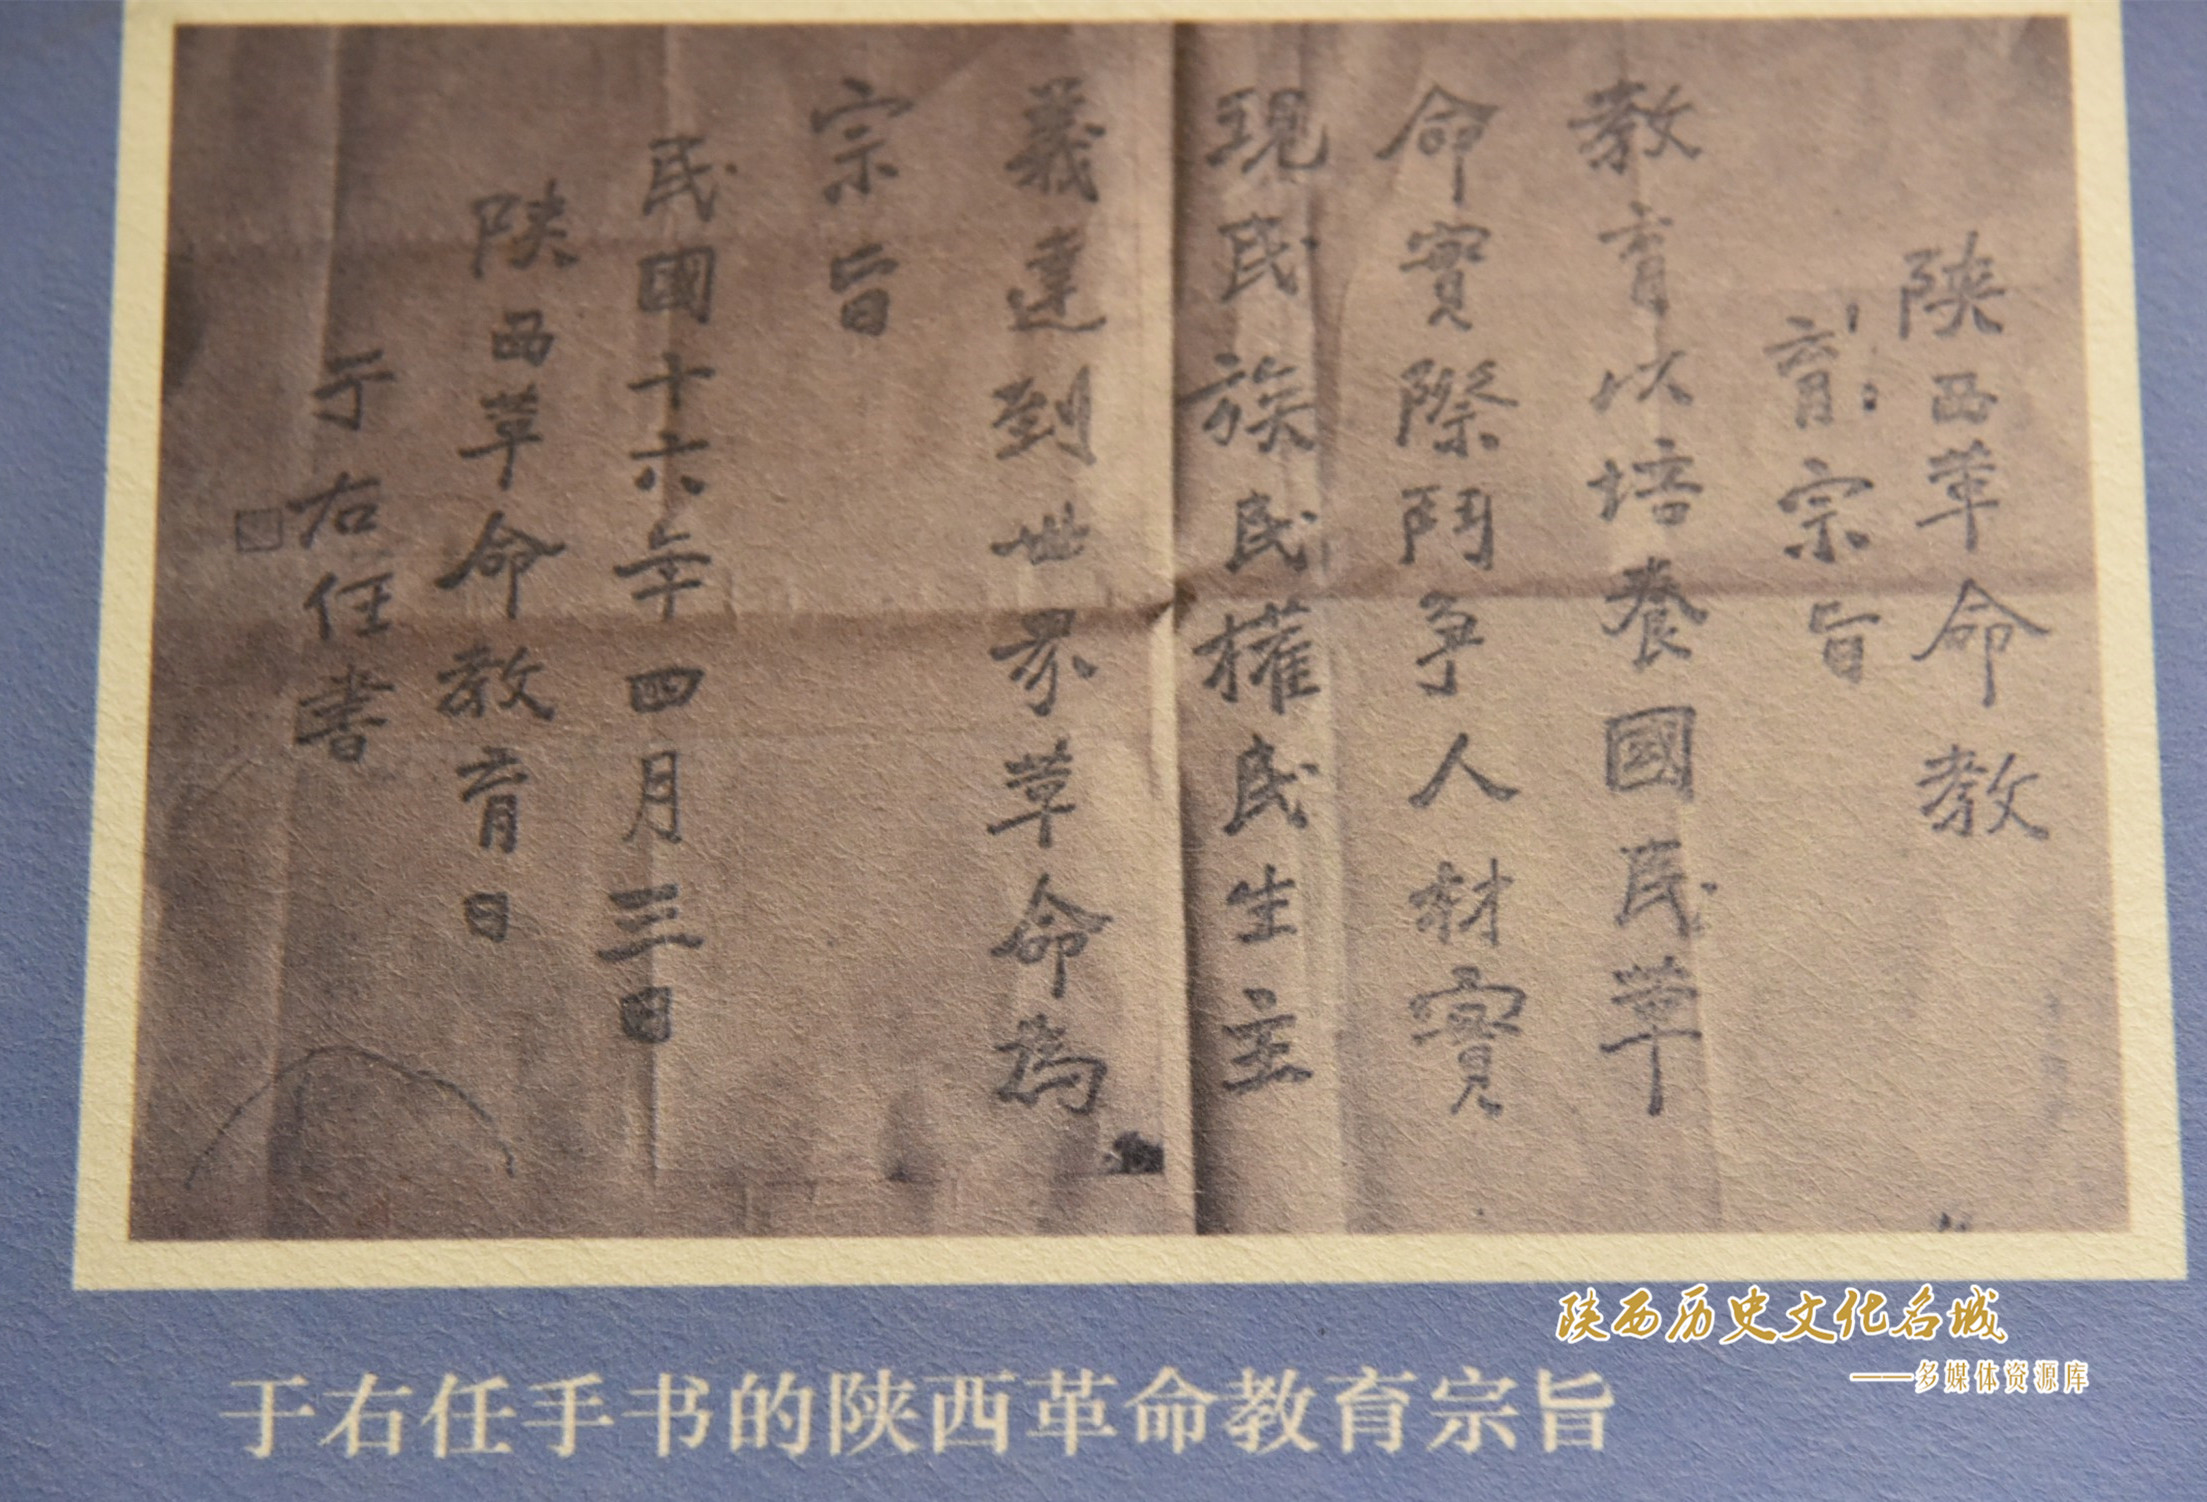 陝西革命教
育宗旨
教育以培養國民革
命實際鬥爭人材實
現民族民權民生主
義達到世界革命為
宗旨
民國十六年四月三日
陝西革命教育日
于右任書
陕西历史文化名城
——多媒体资源库
于右任手书的陕西革命教育宗旨